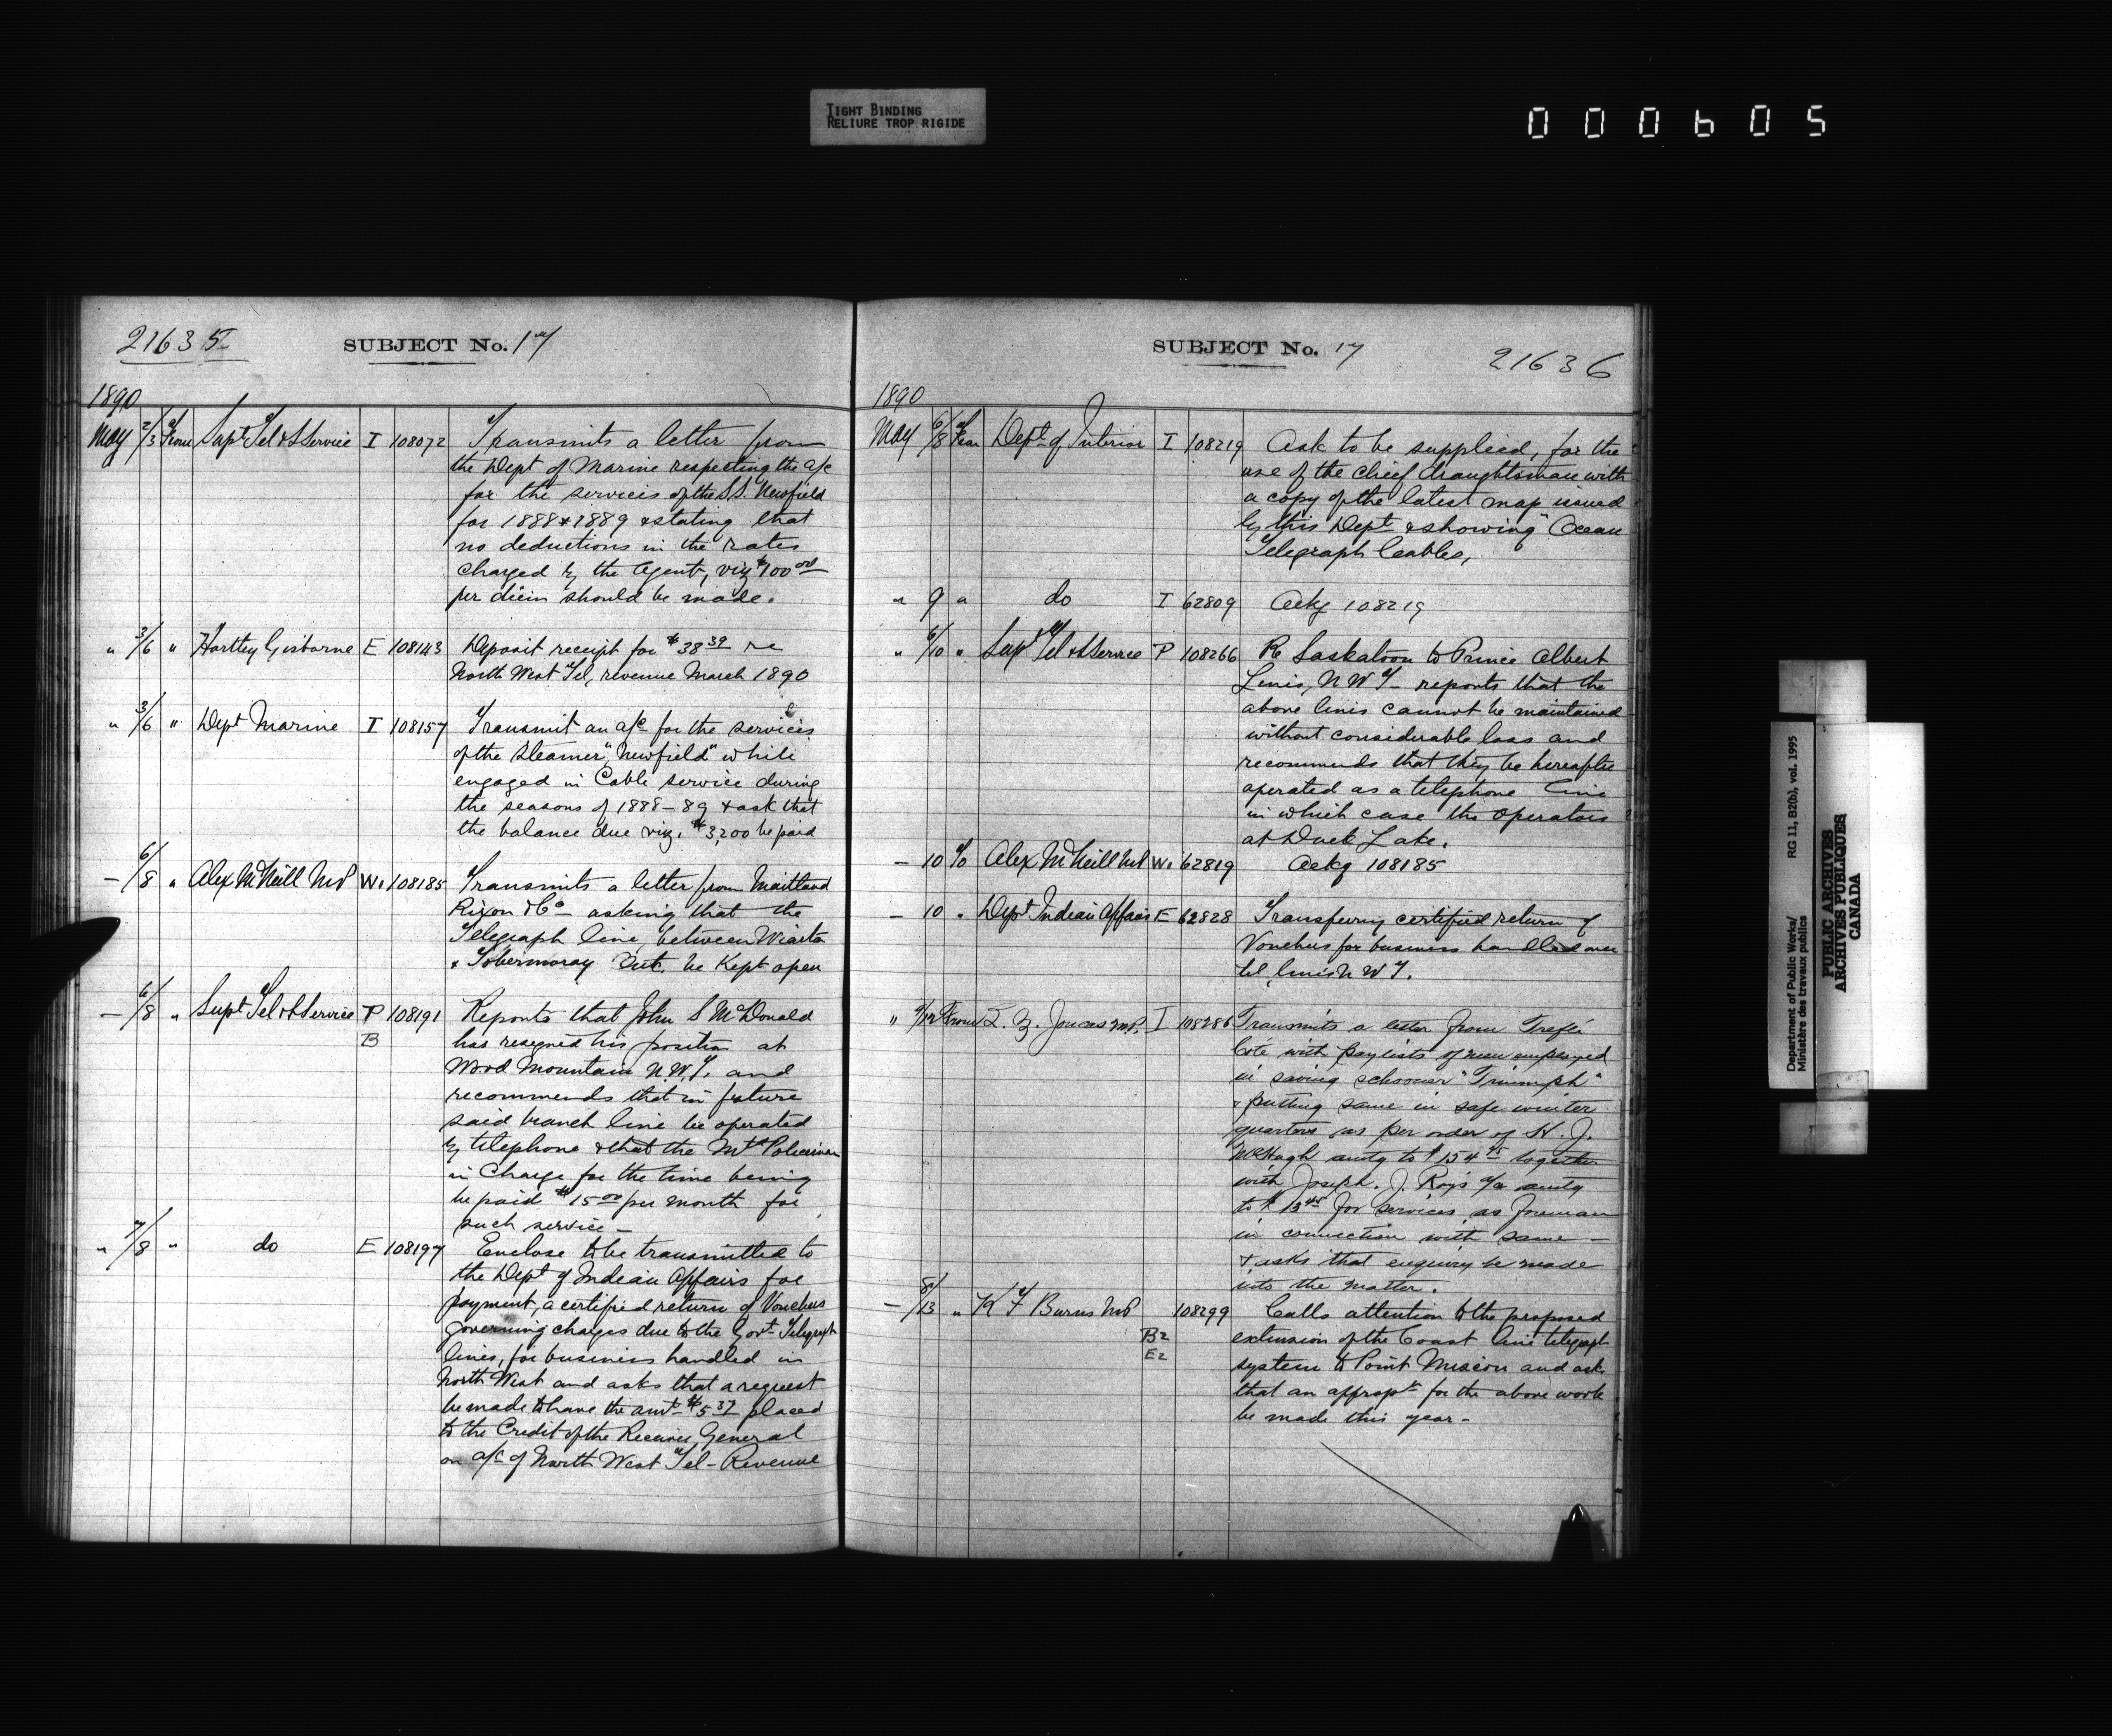 TIGHT BINDING
RELIURE TROP RIGIDE
000605
21635
SUBJECT No. 17
1890
May 2/3 From Supt Tel & S Service I 108072 Transmits a letter from
the Dept of Marine respecting the a/c
for the services of the S.S. Newfield
for 1888 & 1889 & stating that
no deductions in the rates
charged by the Agent, viz $100.00
per diem should be made.
" 3/6 " Hartley Gisborne E 108143 Deposit receipt for $38.39 re
North West Tel, revenue March 1890
" 3/6 " Dept Marine I 108157 Transmit an a/c for the services
of the Steamer "Newfield" while
engaged in Cable service during
the seasons of 1888-89 & ask that
the balance due viz. $3,200 be paid
— 6/8 " Alex McNeill MP W. 108185 Transmits a letter from Maitland
Rixon & Co — asking that the
Telegraph line, between Wiarton
& Tobermoray Ont. be Kept open
— 6/8 " Supt Tel & S Service P 108191 Reports that John S McDonald
B has resigned his position at
Wood Mountain N.W.T. and
recommends that in future
said branch line be operated
by telephone & that the Mtd Policeman
in Charge for the time being
be paid $15.00 per month for
such service —
" 7/8 " do E 108197 Enclose to be transmitted to
the Dept of Indian Affairs for
payment, a certified return of Vouchers
governing charges due to the Govt Telegraph
lines, for business handled in
North West and asks that a request
be made to have the amt $5.37 placed
to the Credit of the Receiver General
on a/c of North West Tel - Revenue
SUBJECT No. 17
21636
1890
May 6/8 From Dept of Interior I 108219 Ask to be supplied, for the
use of the chief draughtsman with
a copy of the latest map issued
by this Dept & showing "Ocean
Telegraph Cables,
" 9 " do I 62809 Ackg 108219
" 6/10 " Supt Tel & S Service P 108266 Re Saskatoon to Prince Albert
Lines, N W T — reports that the
above lines cannot be maintained
without considerable loss and
recommends that they be hereafter
operated as a telephone line
in which case the operators
at Duck Lake.
— 10 To Alex McNeill MP W. 62819 Ackg 108185
— 10 " Dept Indian Affairs E 62828 Transferring certified return of
Vouchers for business handled over
tel, lines N W T.
" 9/12 From L. Z. Joncas M.P. I 108286 Transmits a letter from Treflé
Coté with paylists of men employed
in saving schooner "Triumph"
& putting same in safe winter
quarters as per order of H. J.
McHugh amtg to $154 together
with Joseph. J. Roy's a/c amtg
to $13 for services as foreman
in connection with same —
& asks that enquiry be made
into the matter.
— 8/13 " K F Burns MP 108299 Calls attention to the proposed
B2 extension of the Coast line telegraph
E2 system to Point Miscou and ask
that an appropn for the above work
be made this year —
Department of Public Works/ RG 11, B2(b), vol. 1995
Ministère des travaux publics
PUBLIC ARCHIVES
ARCHIVES PUBLIQUES
CANADA